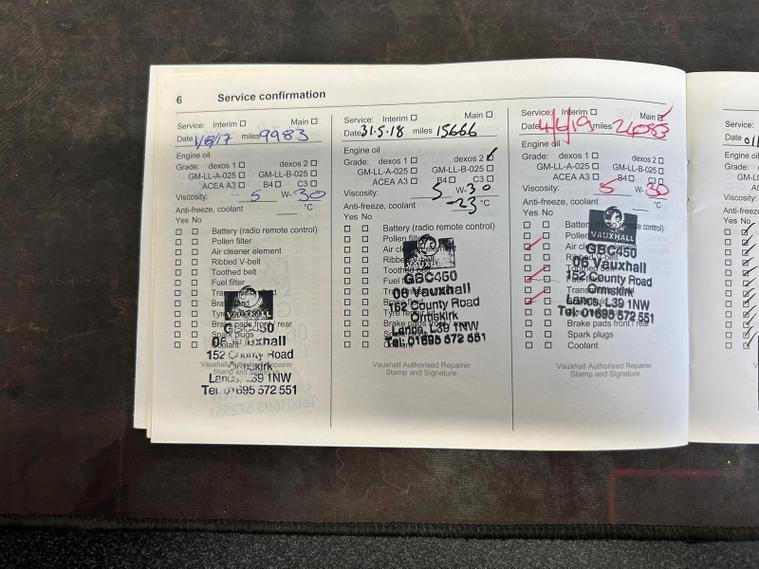 6 Service confirmation
Service: Interim Main
Date 1/8/17 miles 9983
Engine oil
Grade: dexos 1 dexos 2
GM-LL-A-025 GM-LL-B-025
ACEA A3 B4 C3
Viscosity: 5 W- 30
Anti-freeze, coolant °C
Yes No
Battery (radio remote control)
Pollen filter
Air cleaner element
Ribbed V-belt
Toothed belt
Fuel filter
Brake pads front / rear
Spark plugs
Coolant
VAUXHALL
GBC450
06 Vauxhall
152 County Road
Ormskirk
Lancs, L39 1NW
Tel. 01695 572 551
Vauxhall Authorised Repairer
Stamp and Signature
Service: Interim Main
Date 31-5-18 miles 15666
Engine oil
Grade: dexos 1 dexos 2
GM-LL-A-025 GM-LL-B-025
ACEA A3 B4 C3
Viscosity: 5 W- 30
Anti-freeze, coolant -23 °C
Yes No
Battery (radio remote control)
Pollen filter
Air cleaner element
Ribbed V-belt
Toothed belt
Fuel filter
VAUXHALL
GBC450
06 Vauxhall
152 County Road
Ormskirk
Lancs, L39 1NW
Tel. 01695 572 551
Vauxhall Authorised Repairer
Stamp and Signature
Service: Interim Main
Date 4/6/19 miles 26083
Engine oil
Grade: dexos 1 dexos 2
GM-LL-A-025 GM-LL-B-025
ACEA A3 B4 C3
Viscosity: 5 W- 30
Anti-freeze, coolant °C
Yes No
Battery (radio remote control)
Pollen
Air
Brake pads front / rear
Spark plugs
Coolant
VAUXHALL
GBC450
06 Vauxhall
152 County Road
Ormskirk
Lancs, L39 1NW
Tel. 01695 572 551
Vauxhall Authorised Repairer
Stamp and Signature
Service:
Date
Engine oil
Grade:
Viscosity:
Anti-freeze,
Yes No